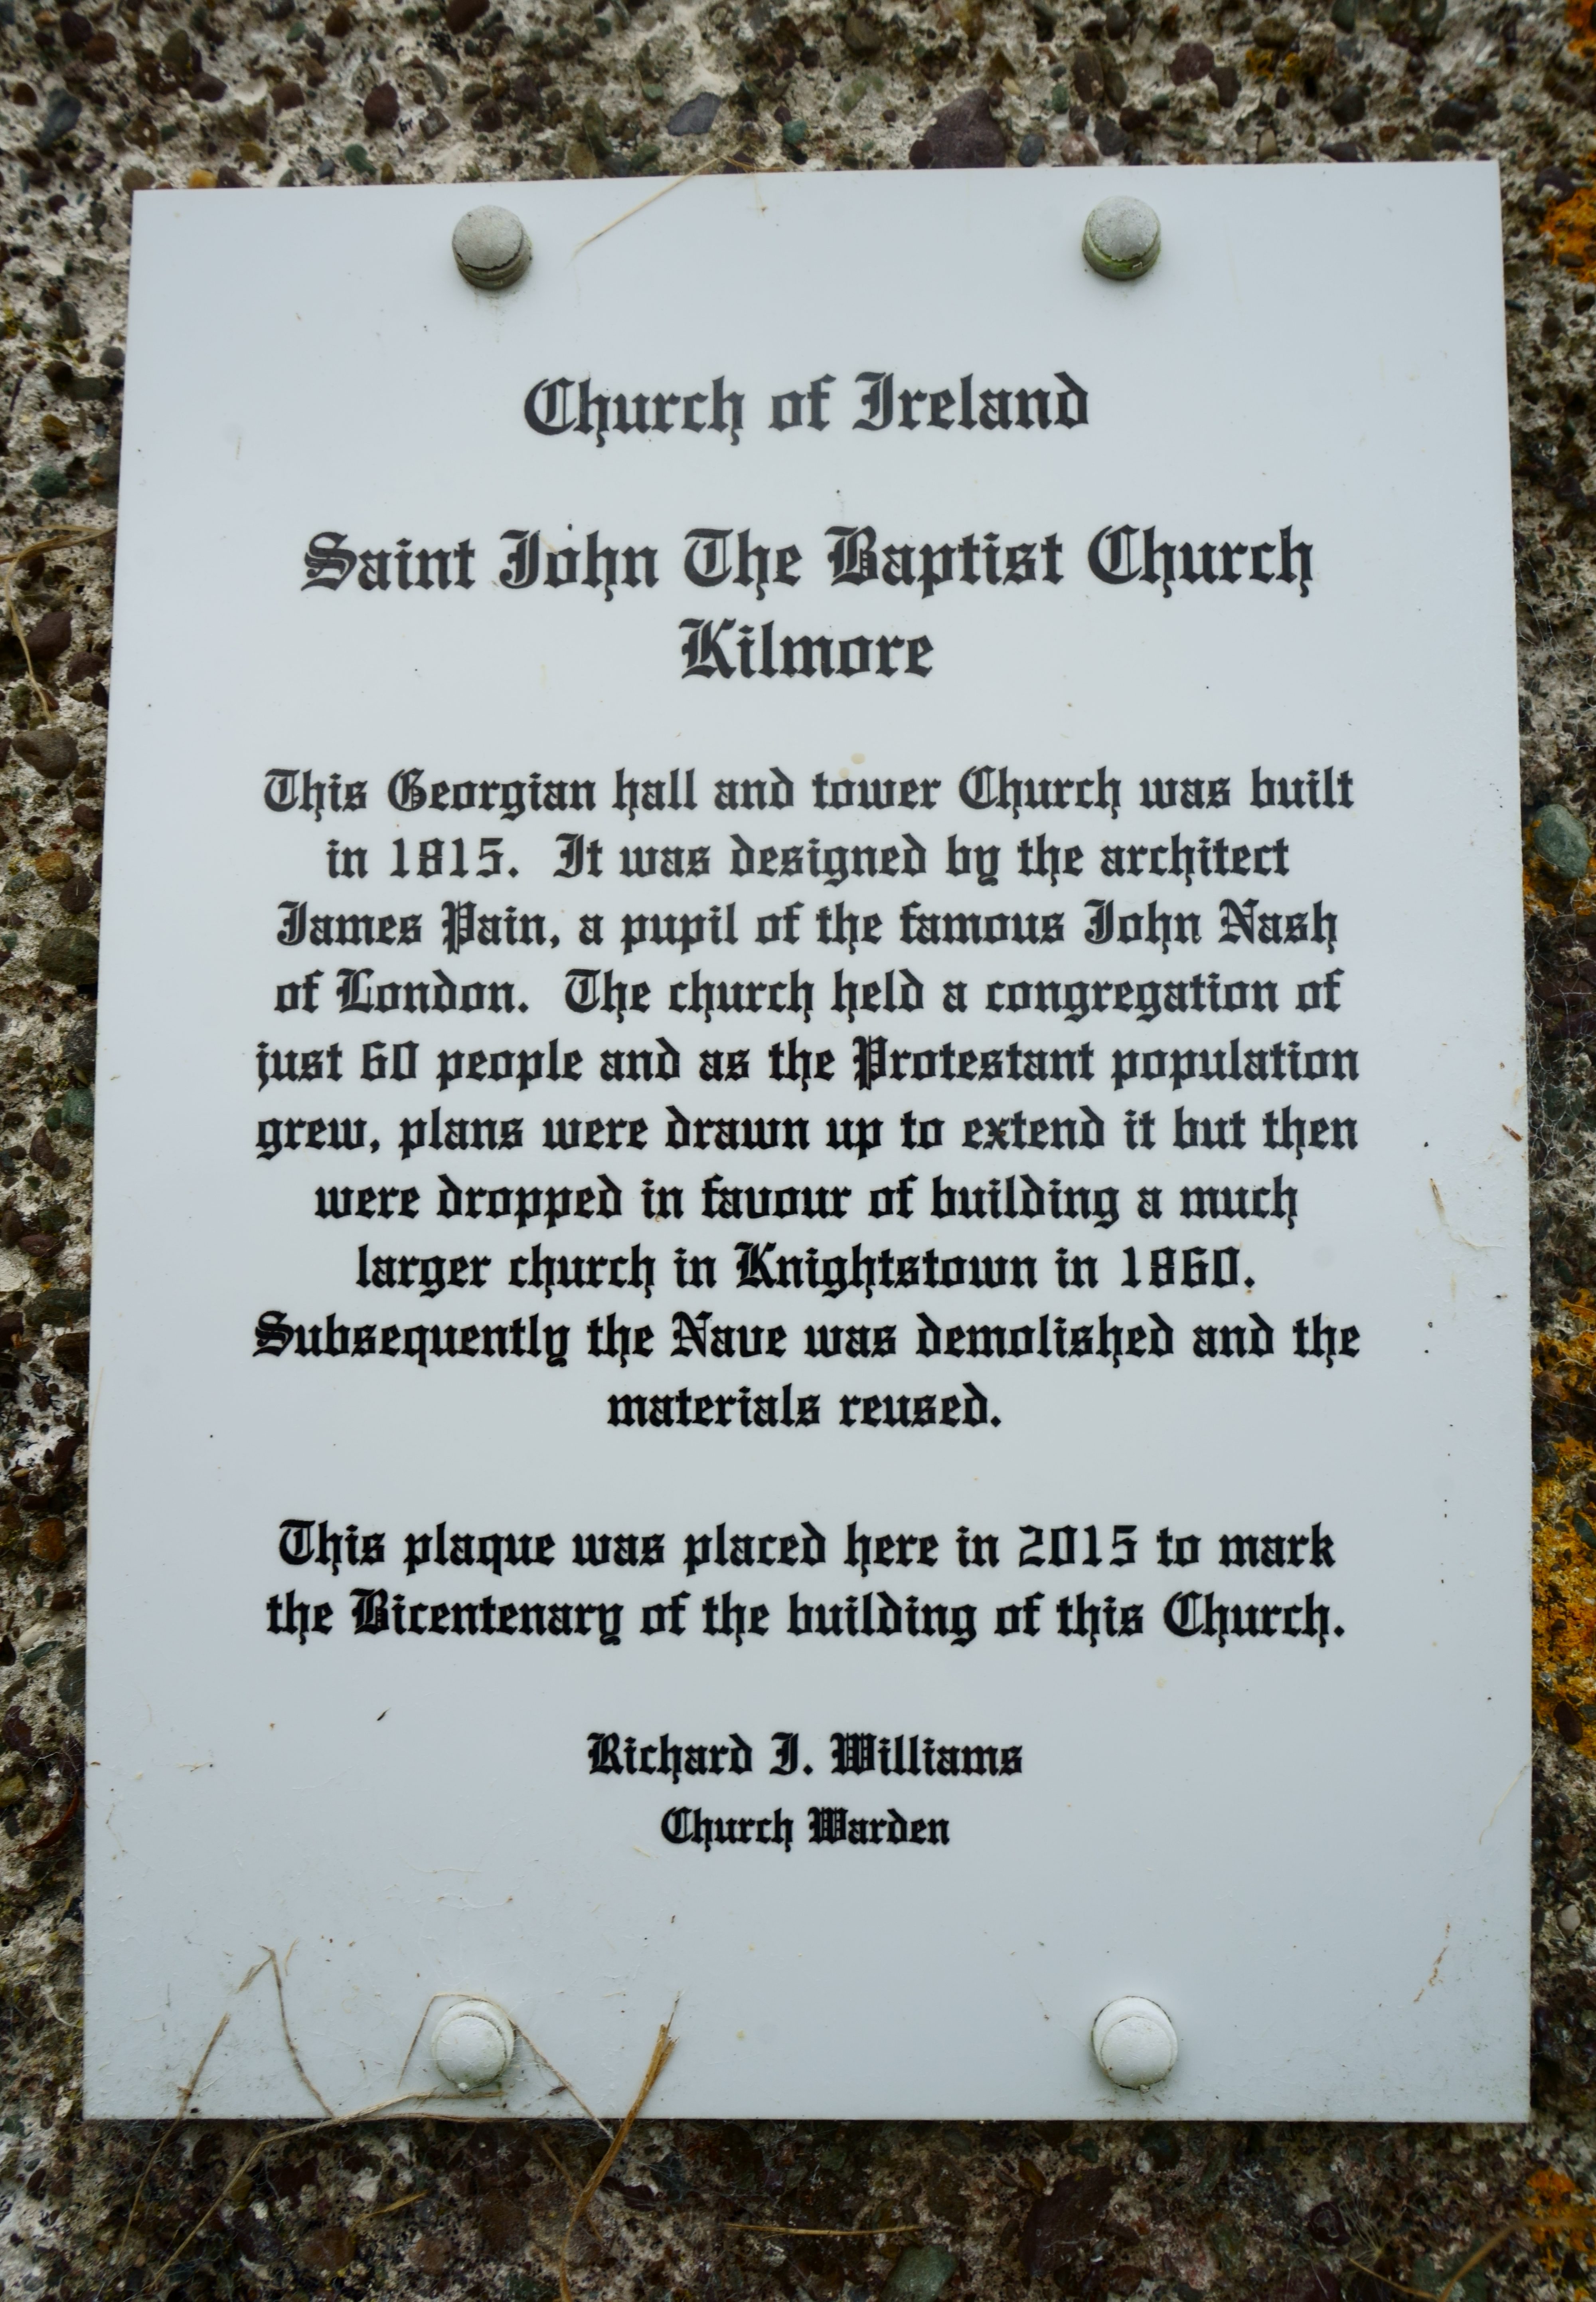 Church of Ireland
Saint John The Baptist Church
Kilmore
This Georgian hall and tower Church was built
in 1815. It was designed by the architect
James Pain, a pupil of the famous John Nash
of London. The church held a congregation of
just 60 people and as the Protestant population
grew, plans were drawn up to extend it but then
were dropped in favour of building a much
larger church in Knightstown in 1860.
Subsequently the Nave was demolished and the
materials reused.
This plaque was placed here in 2015 to mark
the Bicentenary of the building of this Church.
Richard J. Williams
Church Warden